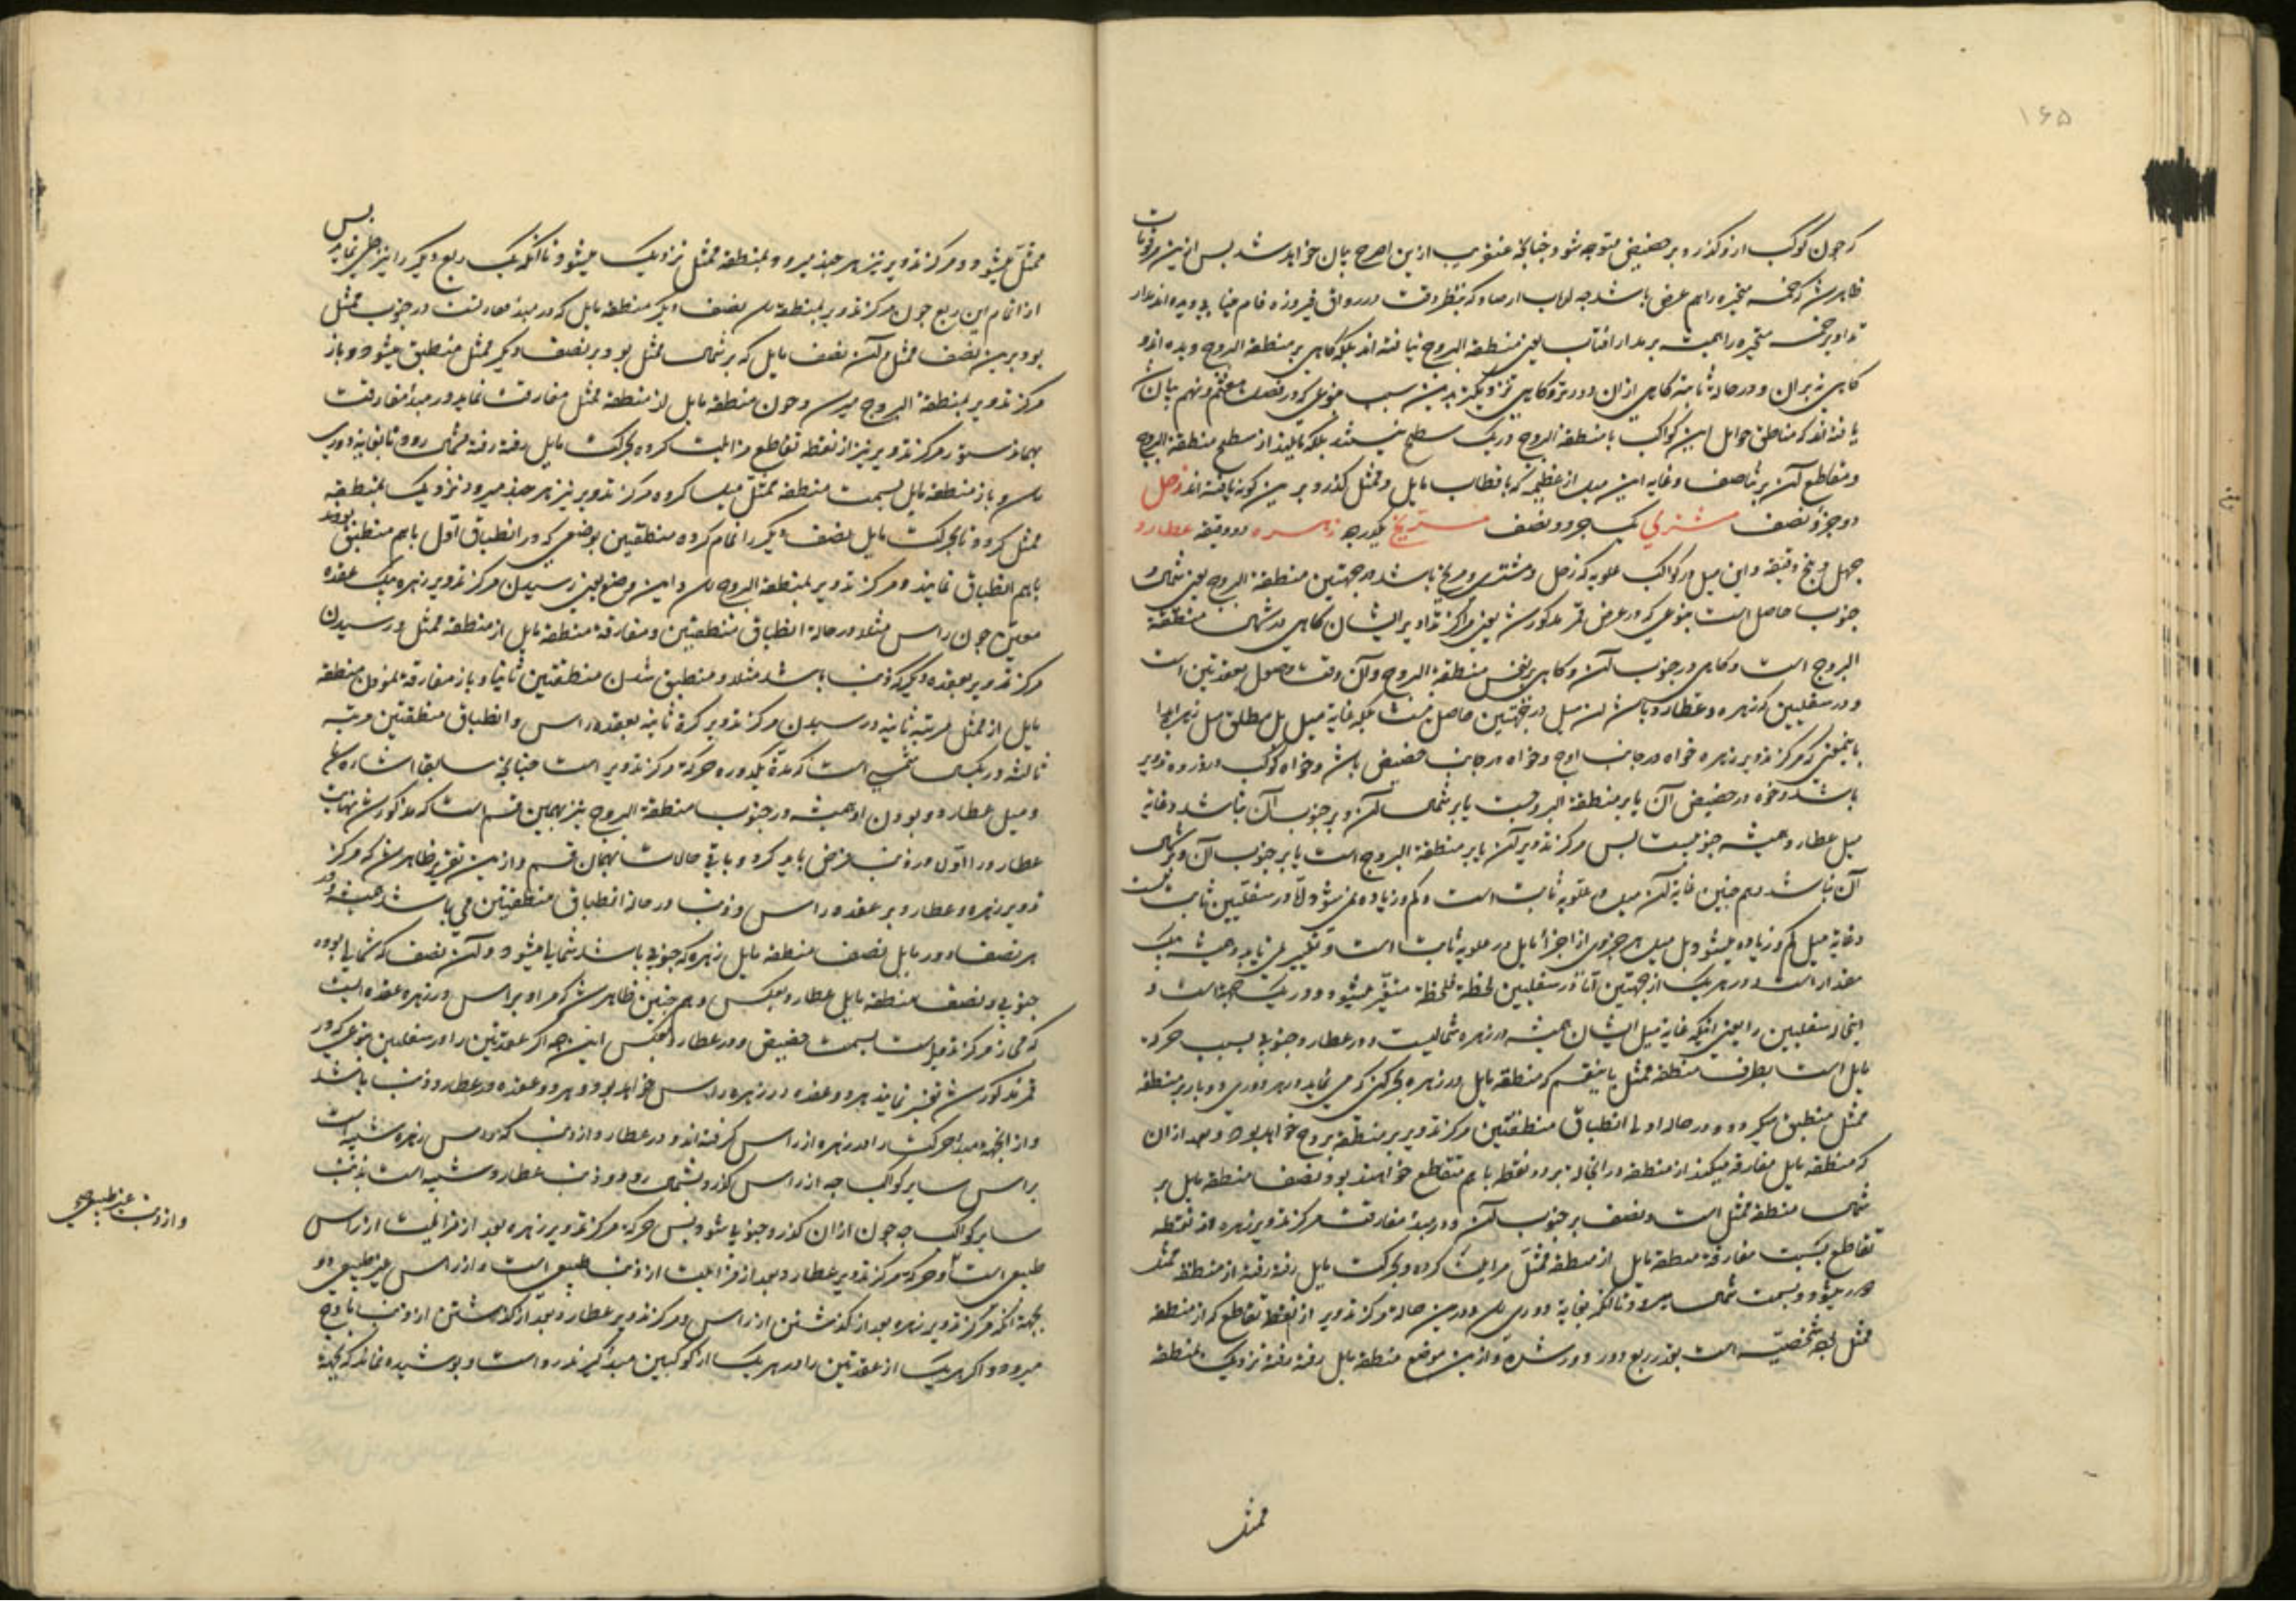 ۱۶۵
که چون کوکب از و گذرد بر حضیض متوجه شود چنانچه عنقریب ازین اصرح بیان خواهد شد پس ازین مرقومات
ظاهر شد که خمسه متحیره را هم عرض باشد چه ارباب ارصاد که بنظر دقت در رواق فیروزه فام مینا دیده اند مدار
تداویر خمسه متحیره را همیشه بر مدار آفتاب یعنی منطقة البروج نیافته اند بلکه گاهی بر منطقة البروج دیده اند و
گاهی نه بران و در حالة ثانیه گاهی ازان دورتر و گاهی نزدیکتر بدین سبب بنوعی که در فصل هفتم و نهم بیان
یافته اند که مناطق حوامل این کواکب با منطقة البروج در یک سطح نیستند بلکه مایلند از سطح منطقة البروج
و تقاطع آن بر تناصف و غایه این میل از عظیمه که باقطاب مایل و ممثل گذرد برین گونه یافته اند زحل
دو جزو نصف مشتری یک جزو و نصف مریخ یکدرجه زهره ده دقیقه عطارد
چهل و پنج دقیقه و این میل در کواکب علویه که زحل و مشتری و مریخ باشد در جهتین منطقة البروج یعنی شمال و
جنوب حاصل است بنوعی که در عرض قمر مذکور شد یعنی مراکز تداویر ایشان گاهی در شمال منطقة
البروج است و گاهی در جنوب آن و گاهی بر نفس منطقة البروج و آن وقت وصول بعقدتین است
و در سفلیین که زهره و عطارد باشند این میل در جهتین حاصل نیست بلکه غایة میل بل مطلق میل زهره
باینمعنی که مرکز تدویر زهره خواه در جانب اوج و خواه در جانب حضیض باشد و خواه کوکب در ذروه تدویر
باشد و خواه در حضیض آن یا بر منطقة البروجست یا بر شمال آن و بر جنوب آن نباشد و غایة
میل عطارد همیشه جنوبیست پس مرکز تدویر آن یا بر منطقة البروج است یا بر جنوب آن و بر شمال
آن نباشد و هم چنین غایة آن میل در علویه ثابت است و کم و زیاده نمی شود و اما در سفلیین ثابت نیست
و غایة میل کم و زیاده میشود بل میل هر جزوی از اجزاء مایل در علویه ثابت است و تغییر نمی یابد و همیشه بیک
مقدار است در هر یک از جهتین اما در سفلیین لحظة فلحظة متغیر میشود و در یک جهت است و
این حال سفلیین را یعنی اینکه غایة میل ایشان همیشه در زهره شمالیست و در عطارد جنوبی بسبب حرکة
مایل است بطرف منطقه ممثل باینقسم که منطقه مایل در زهره بحرکتی که می نماید در هر دوری دو بار بر منطقه
ممثل منطبق میگردد و در حال اولی انطباق منطقتین مرکز تدویر بر منطقه بروج خواهد بود و بعد ازان
که منطقه مایل مفارقه میکند از منطقه در انحال بر دو نقطه باهم متقاطع خواهند بود و نصف منطقه مایل بر
شمال منطقه ممثل است و نصف بر جنوب آن و در مبدء مفارقت مرکز تدویر زهره از نقطه
تقاطع بسبب مفارقة منطقه مایل از منطقه ممثل مزایلت کرده و بحرکت مایل رفته رفته از منطقه ممثل
دور میشود و بسمت شمال میرود تا آنکه بغایة دوری رسد و درین حالة مرکز تدویر از نقطه تقاطع که از منطقه
ممثل بوده شخصیه است بقدر ربع دور دور شده و ازین موضع منطقه مایل رفته رفته نزدیک بمنطقه
ممثل
ممثل میشود و مرکز تدویر نیز هر چند میرود بمنطقه ممثل نزدیک میشود تا آنکه یک ربع دیگر را نیز طی نماید پس
از اتمام این ربع چون مرکز تدویر بمنطقه رسد نصف دیگر منطقه مایل که در مبدء مفارقت در جنوب ممثل
بود برین نصف ممثل و آن نصف مایل که بر شمال ممثل بود بر نصف دیگر ممثل منطبق میشود و باز
مرکز تدویر بمنطقة البروج میرسد و چون منطقه مایل از منطقه ممثل مفارقت نماید در مبدء مفارقت
بهمان دستور مرکز تدویر نیز از نقطه تقاطع مزایلت کرده بحرکت مایل رفته رفته بشمال رود تا بغایة دوری
رسد و باز منطقه مایل بسمت منطقه ممثل میل کرده مرکز تدویر نیز هر چند میرود نزدیک بمنطقه
ممثل گردد تا بحرکت مایل نصف دیگر را تمام کرده منطقتین بوضعی که در انطباق اول باهم منطبق بودند
باهم انطباق نمایند و مرکز تدویر بمنطقة البروج رسد و این وضع یعنی رسیدن مرکز تدویر زهره بیک عقده
معین چون راس مثلا در حالة انطباق منطقتین و مفارقة منطقه مایل از منطقه ممثل و رسیدن
مرکز تدویر بعقده دیگر که ذنب باشد مثلا و منطبق شدن منطقتین ثانیا و باز مفارقة نمودن منطقه
مایل از ممثل مرتبه ثانیه و رسیدن مرکز تدویر کرة ثانیه بعقده راس و انطباق منطقتین مرتبه
ثالثه در یکسال شمسی است که مدة یکدوره حرکة مرکز تدویر است چنانچه سابقا اشاره شد
و میل عطارد و بودن او همیشه در جنوب منطقة البروج نیز بهمین قسم است که مذکور شد نهایت
عطارد را اول در ذنب فرض باید کرد و باقی حالات بهمان قسم و ازین تقریر ظاهر شد که مرکز
تدویر زهره و عطارد بر عقده راس و ذنب در حالة انطباق منطقتین می باشد همیشه و در
هر نصف دور مایل نصف منطقه مایل زهره که جنوبی باشد شمالی میشود و آن نصف که شمالی بوده
جنوبی و نصف منطقه مایل عطارد بعکس و هم چنین ظاهر شد که مراد براس در زهره عقده ایست
که مجاز مرکز تدویر است بسمت حضیض و در عطارد بعکس این چه اگر عقدتین را در سفلیین بنوعی که در
قمر مذکور شد تفسیر نمایند هر دو عقده در زهره راس خواهد بود و هر دو عقده در عطارد ذنب باشد
و از اینجهة مبدء حرکت را در زهره از راس گرفته اند و در عطارد از ذنب که راس زهره شبیه است
براس سایر کواکب چه از راس گذرد بشمال رود و ذنب عطارد شبیه است بذنب
سایر کواکب چه چون ازان گذرد جنوبی شود پس حرکة مرکز تدویر زهره بعد از مزایلت از راس
طبیعی است و حرکة مرکز تدویر عطارد بعد از مزایلت از ذنب طبیعی است و از راس غیر طبیعی و
بجهة آنکه مرکز تدویر زهره بعد از گذشتن از راس و مرکز تدویر عطارد بعد از گذشتن از ذنب باوج
میرود و اگر هر یک از عقدتین را در هر یک از کوکبین مبدء گیرند رواست و پوشیده نماند که بجهة
و از ذنب غیر طبیعی